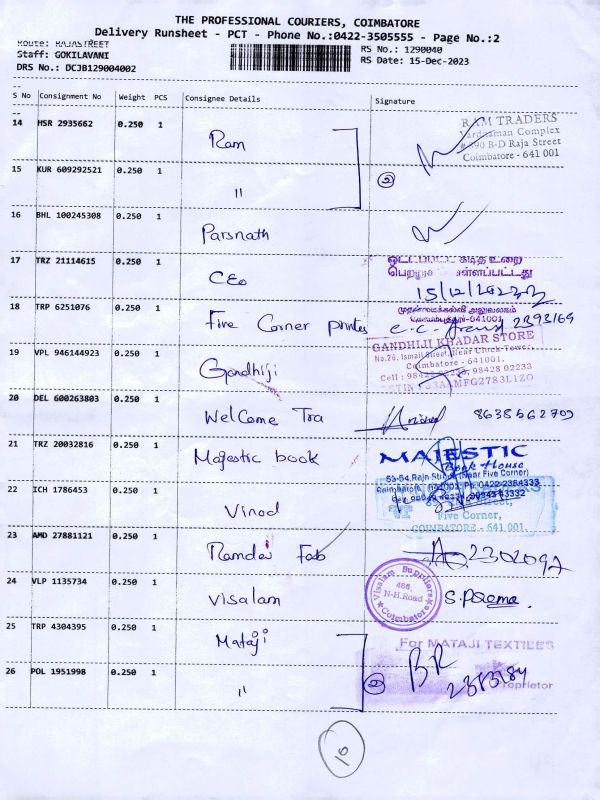 THE PROFESSIONAL COURIERS, COIMBATORE
Delivery Runsheet - PCT - Phone No.:0422-3505555 - Page No.:2
Route: RAJASTREET
RS No.: 1290040
Staff: GOKILAVANI
RS Date: 15-Dec-2023
DRS No.: DCJB129004002
S No Consignment No Weight PCS Consignee Details Signature
14 HSR 2935662 0.250 1 Ram
RAM TRADERS
Vardhaman Complex
# 390 B-D Raja Street
Coimbatore - 641 001
15 KUR 609292521 0.250 1 " 2
16 BHL 100245308 0.250 1 Parsnath
17 TRZ 21114615 0.250 1 CEO
கடித உறை
15/12/2023
18 TRP 6251076 0.250 1 Five Corner printes
அலுவலகம்
-641001
2393169
19 VPL 946144923 0.250 1 Gandhiji
GANDHIJI KHADAR STORE
No.26, Ismail Street, Near Clock Tower,
Coimbatore - 641001.
98428 02233
20 DEL 600263803 0.250 1 Welcome Tra
21 TRZ 20032816 0.250 1 Majestic book
MAJESTIC
Book House
53-54, Raja Street (Near Five Corner)
22 ICH 1786453 0.250 1 Vinod
Five Corner,
COIMBATORE - 641 001.
23 AMD 27881121 0.250 1 Ramdev Fab
24 VLP 1135734 0.250 1 Visalam
Visalam Suppliers
466,
N-H.Road
Coimbatore
25 TRP 4304395 0.250 1 Mataji
For MATAJI TEXTILES
BR
26 POL 1951998 0.250 1 " 2
Proprietor
10